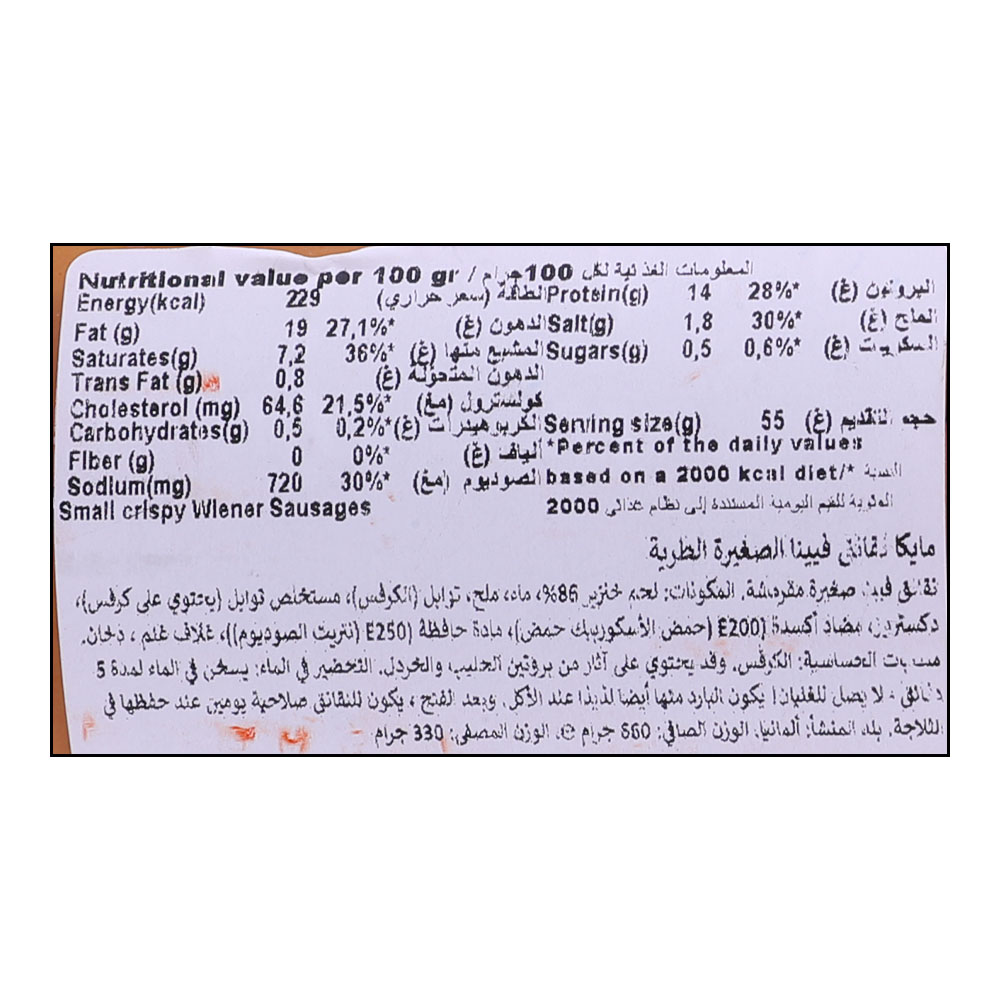 Nutritional value per 100 gr / المعلومات الغذئية لكل 100 جرام
Energy(kcal) 229 الطاقة (سعر حراري) Protein(g) 14 28%* البروتين (غ)
Fat (g) 19 27,1%* الدهون (غ) Salt(g) 1,8 30%* الملح (غ)
Saturates(g) 7,2 36%* المشبع منها (غ) Sugars(g) 0,5 0,6%* السكريات (غ)
Trans Fat (g) 0,8 الدهون المتحولة (غ)
Cholesterol (mg) 64,6 21,5%* كولسترول (مغ)
Carbohydrates(g) 0,5 0,2%* الكربوهيدرات (غ) Serving size(g) 55 حجم التقديم (غ)
Fiber (g) 0 0%* الياف (غ) *Percent of the daily values
Sodium(mg) 720 30%* الصوديوم (مغ) based on a 2000 kcal diet/* النسبة
Small crispy Wiener Sausages المئوية للقيم اليومية المستندة إلى نظام غذائي 2000
مايكا نقانق فيينا الصغيرة الطرية
نقانق فيينا صغيرة مقرمشة. المكونات: لحم خنزير 86%، ماء، ملح، توابل (الكرفس)، مستخلص توابل (يحتوي على كرفس)،
دكستروز، مضاد أكسدة (E200 (حمض الأسكوربيك حمض)، مادة حافظة (E250 (نتريت الصوديوم))، غلاف غنم ، دخان.
مسببات الحساسية: الكرفس. وقد يحتوي على آثار من بروتين الحليب والخردل. التحضير في الماء: يسخن في الماء لمدة 5
دقائق - لا يصل للغليان! يكون البارد منها أيضا لذيذا عند الأكل. وبعد الفتح ، يكون للنقانق صلاحية يومين عند حفظها في
الثلاجة. بلد المنشأ: ألمانيا. الوزن الصافي: 660 جرام ℮. الوزن المصفى: 330 جرام